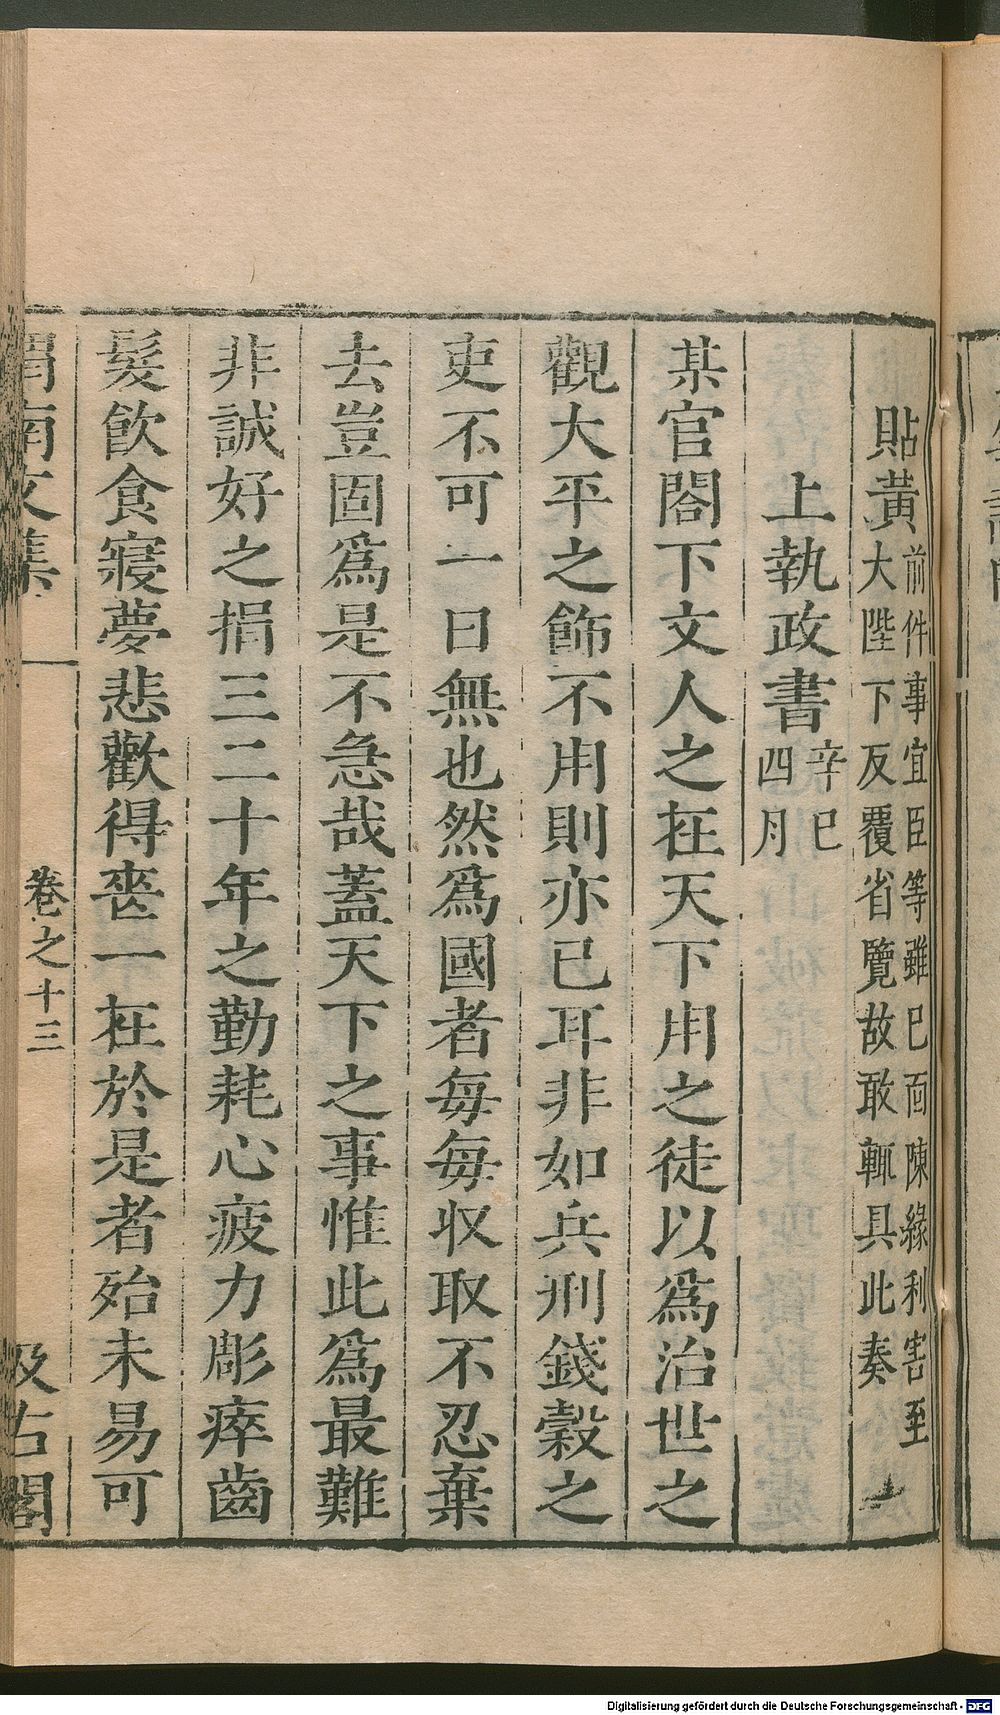 貼黃前件事宜臣等雖已面陳緣利害至
大陛下反覆省覽故敢輒具此奏
上執政書辛巳
四月
某官閤下文人之在天下用之徒以爲治世之
觀大平之飾不用則亦已耳非如兵刑錢穀之
吏不可一日無也然爲國者每每収取不忍棄
去豈固爲是不急哉蓋天下之事惟此爲最難
非誠好之捐三二十年之勤耗心疲力彫瘁齒
髮飲食寢夢悲歡得喪一在於是者殆未易可
渭南文集
卷之十三
汲古閣
Digitalisierung gefördert durch die Deutsche Forschungsgemeinschaft - DFG